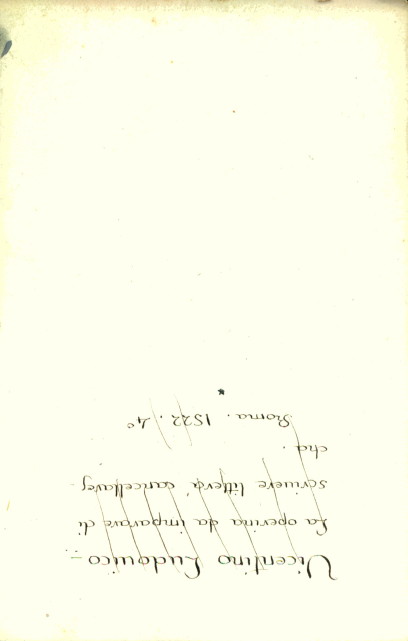 Vicentino Ludovico –
La operina da imparare di
scrivere littera cancellare-
cha.
Roma. 1522. 4°